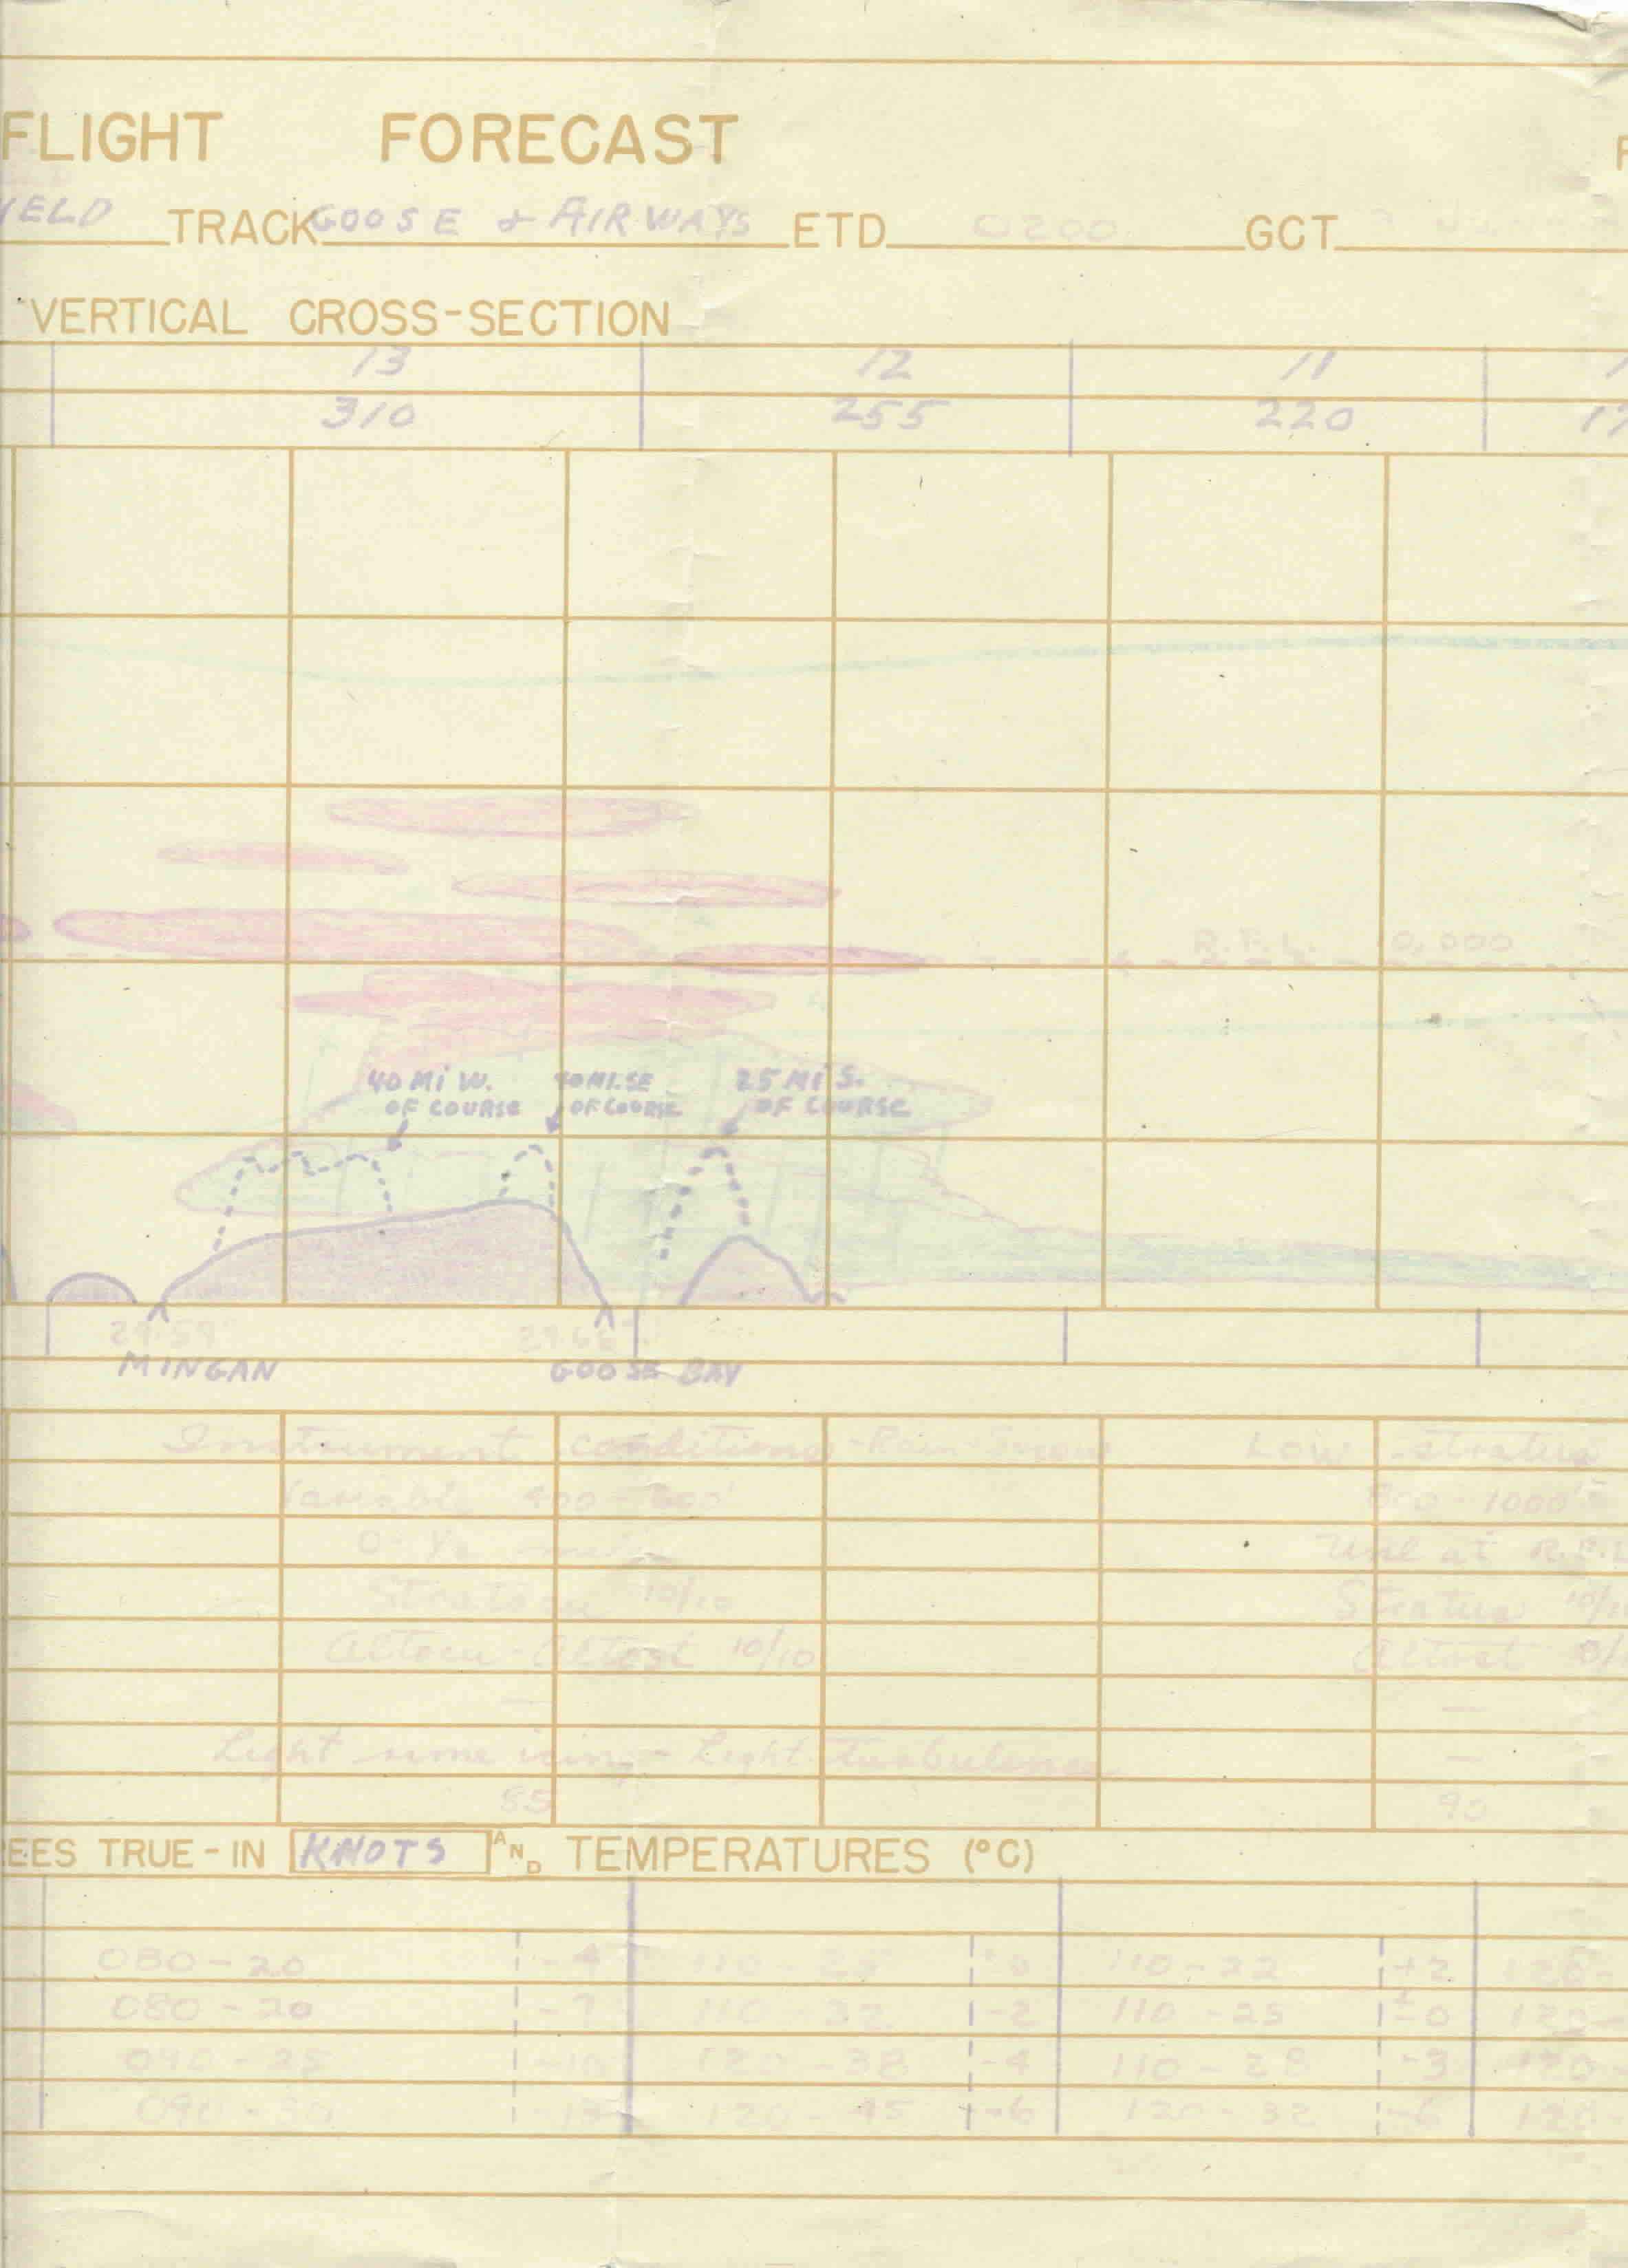 FLIGHT FORECAST
TRACK GOOSE & AIRWAYS ETD 0200 GCT
VERTICAL CROSS-SECTION
13 12 11
310 255 220
R.F.L. 10,000
40 MI W. MI.SE 25 MI S.
OF COURSE OF COURSE OF COURSE
29.59
MINGAN GOOSE BAY
Instrument conditions - Rain - Snow Low stratus
Variable 800 - 1000'
Unl at
Stratocu 10/10 Stratus
Altocu - Altost 10/10 Altost
—
—
Light rime icing - Light turbulence —
85 90
TRUE - IN KNOTS AND TEMPERATURES (°C)
080 - 20 -4 110 - 25 110 - 22 +2
080 - 20 -7 110 - 32 -2 110 - 25 ±0
090 - 25 -10 120 - 38 -4 110 - 28 -3
090 - 30 120 - 45 -6 120 - 32 -6